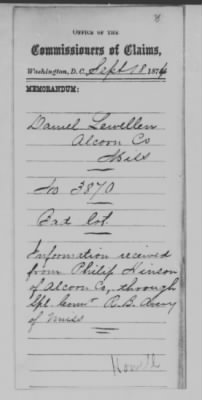 8
OFFICE OF THE
Commissioners of Claims,
Washington, D.C., Sept 18, 1874
MEMORANDUM:
Daniel Lewellen
Alcorn Co
Miss
No 3870
Information received
from Philip Hinson
of Alcorn Co, through
Spl. Comr R.B. Avery
of Miss
Howell